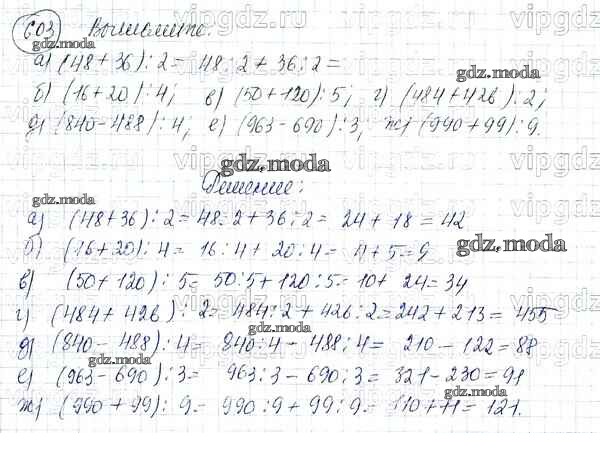 603 Выполните:
а) (48+36):2 = 48:2 + 36:2 =
б) (16+20):4; в) (50+120):5; г) (484+426):2;
д) (840-488):4; е) (963-690):3; ж) (990+99):9.
Решение:
а) (48+36):2 = 48:2 + 36:2 = 24 + 18 = 42
б) (16+20):4 = 16:4 + 20:4 = 4+5=9
в) (50+120):5 = 50:5+120:5= 10+ 24=34
г) (484+426):2=484:2+426:2=242+213= 455
д) (840-488):4= 840:4-488:4= 210-122=88
е) (963-690):3= 963:3-690:3= 321-230=91
ж) (990+99):9= 990:9+99:9= 110+11=121.
gdz.moda
gdz.moda
gdz.moda
gdz.moda
gdz.moda
gdz.moda
gdz.moda
gdz.moda
gdz.moda
vipgdz.ru